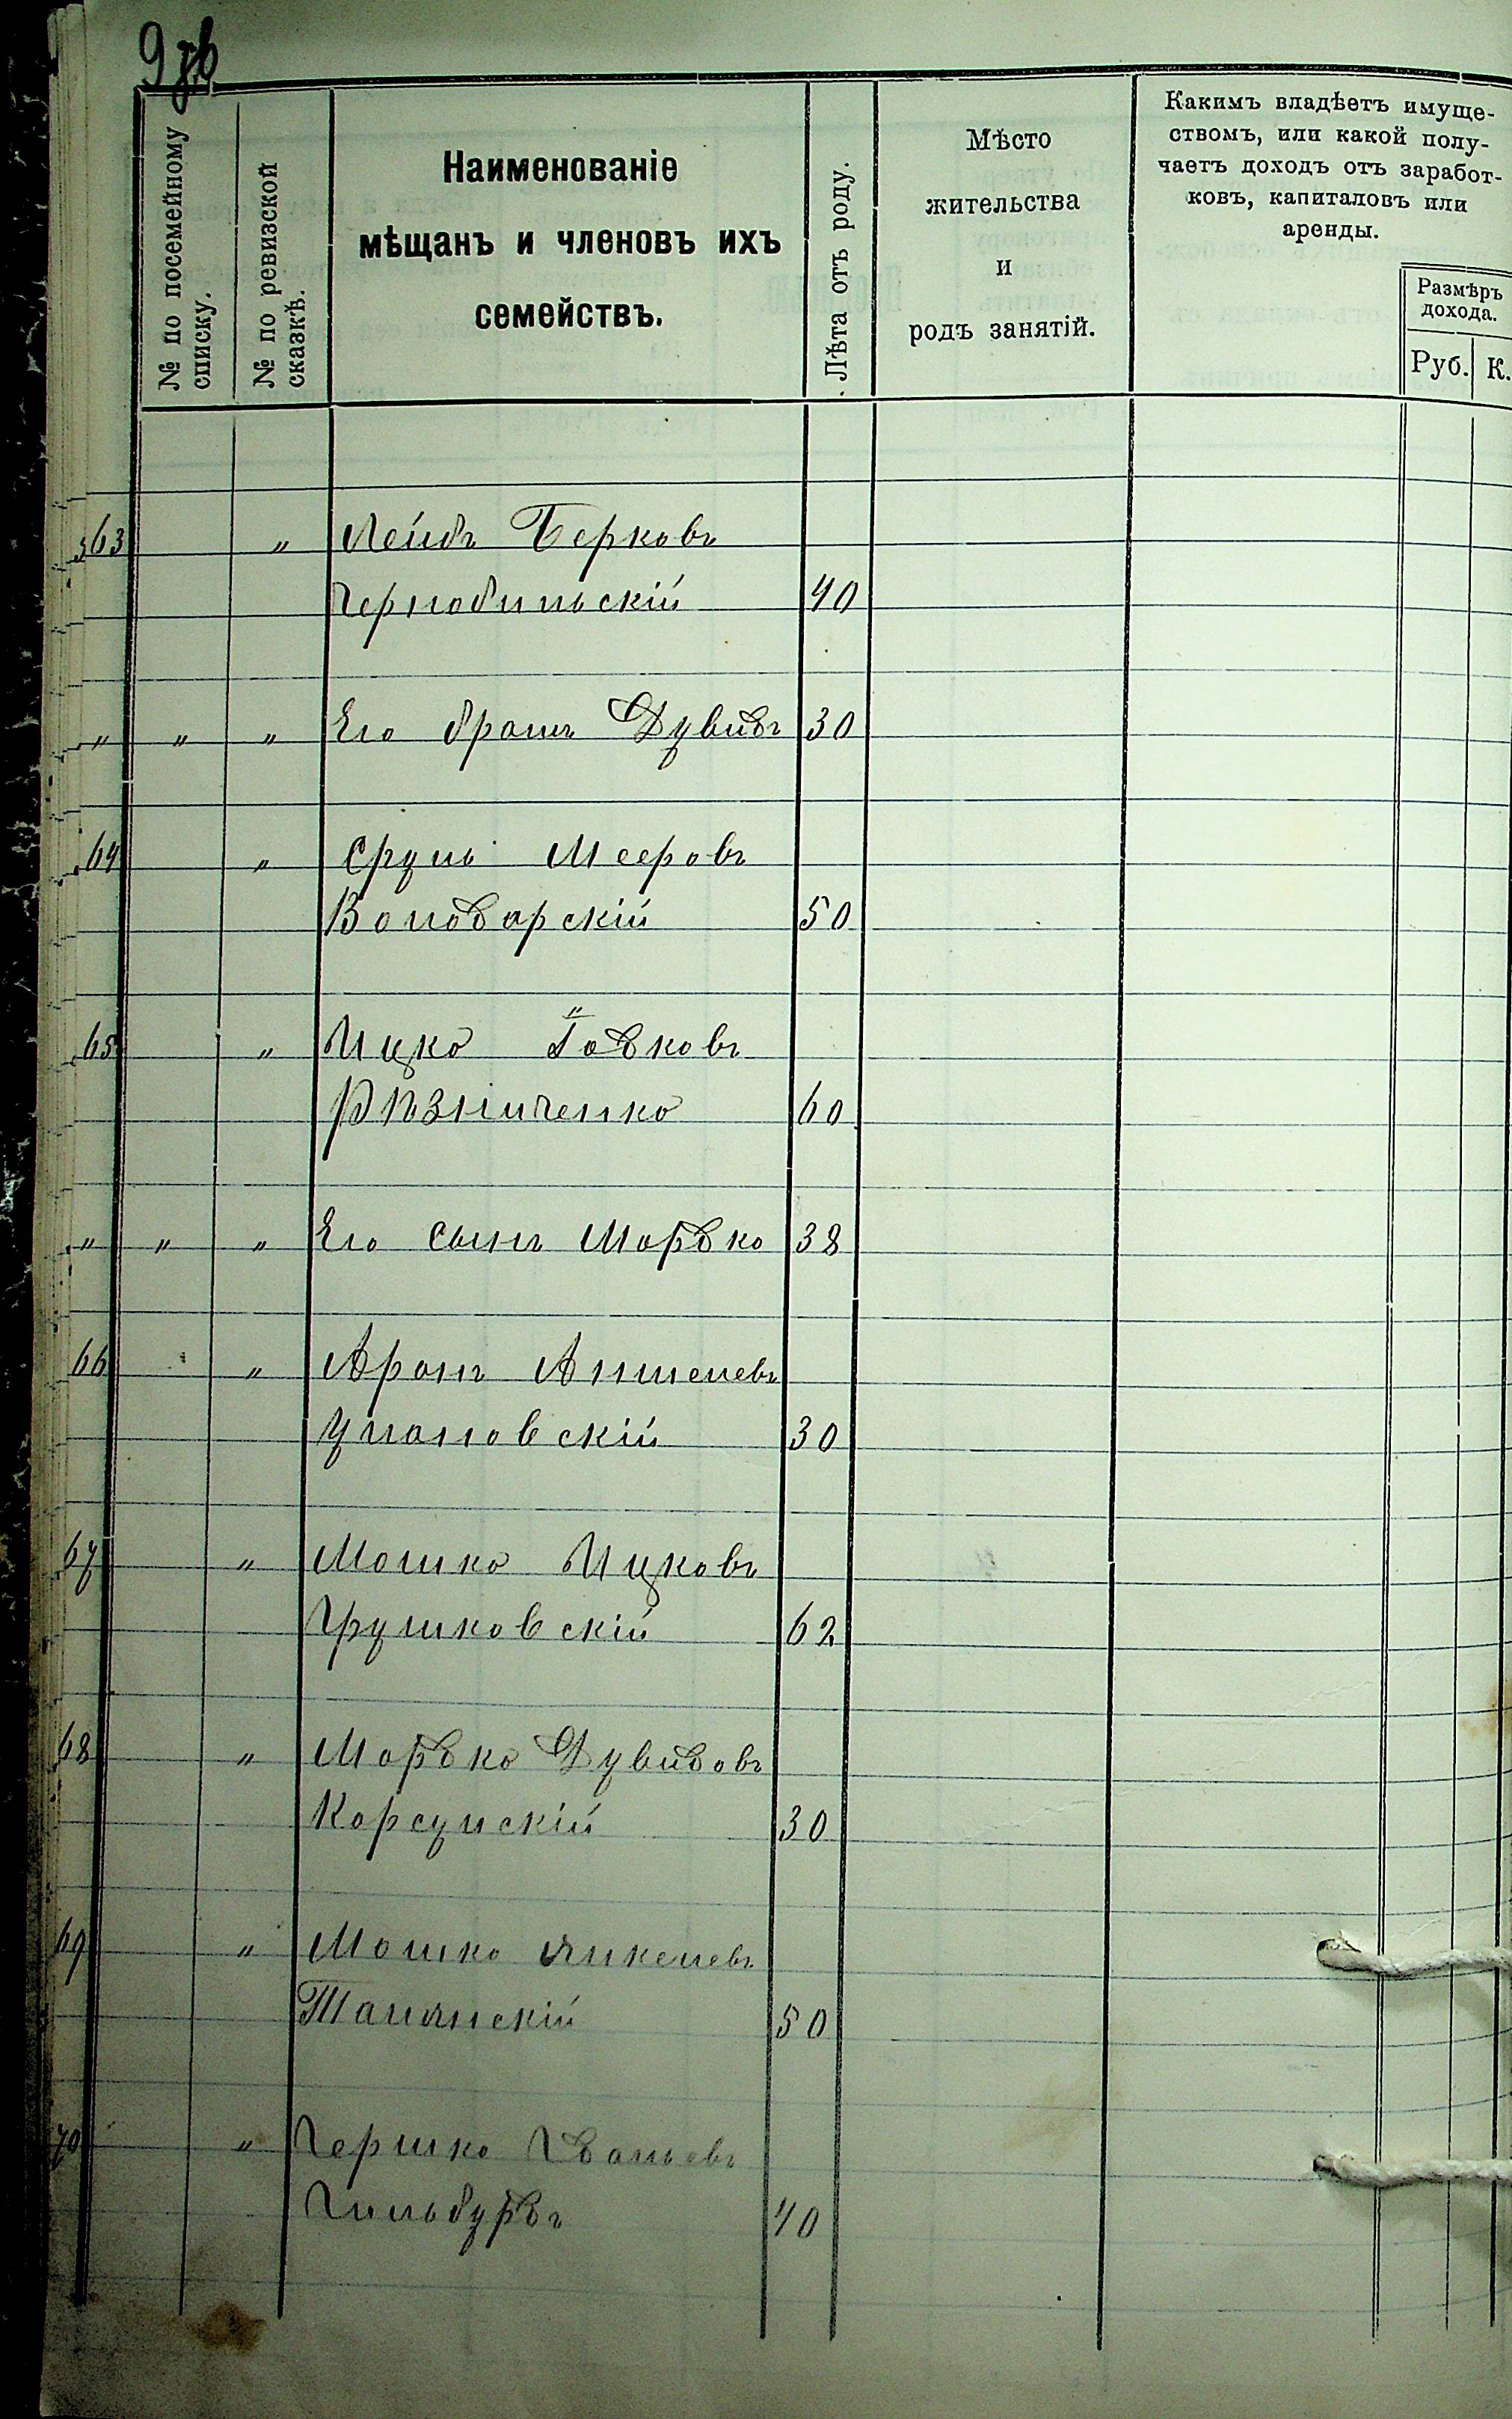 № по посемейному списку.
№ по ревизской сказкѣ.
Наименованіе
мѣщанъ и членовъ ихъ
семействъ.
Лѣта отъ роду.
Мѣсто
жительства
и
родъ занятій.
Какимъ владѣетъ имуще-
ствомъ, или какой полу-
чаетъ доходъ отъ заработ-
ковъ, капиталовъ или
аренды.
Размѣръ
дохода.
Руб. К.
363 " Лейбъ Берковъ
Чернобильскій 40
" " " Его братъ Дувидъ 30
64 " Сруль Мееровъ
Володарскій 50
65 " Ицко Іовковъ
Рѣзниченко 60
" " " Его сынъ Мордко 38
66 " Аронъ Аншелевъ
Умановскій 30
67 " Мошко Ицковъ
Грушковскій 62
68 " Мордко Дувидовъ
Корсунскій 30
69 " Мошко Янкелевъ
Талянскій 50
70 " Гершко
Гильбурдъ 40